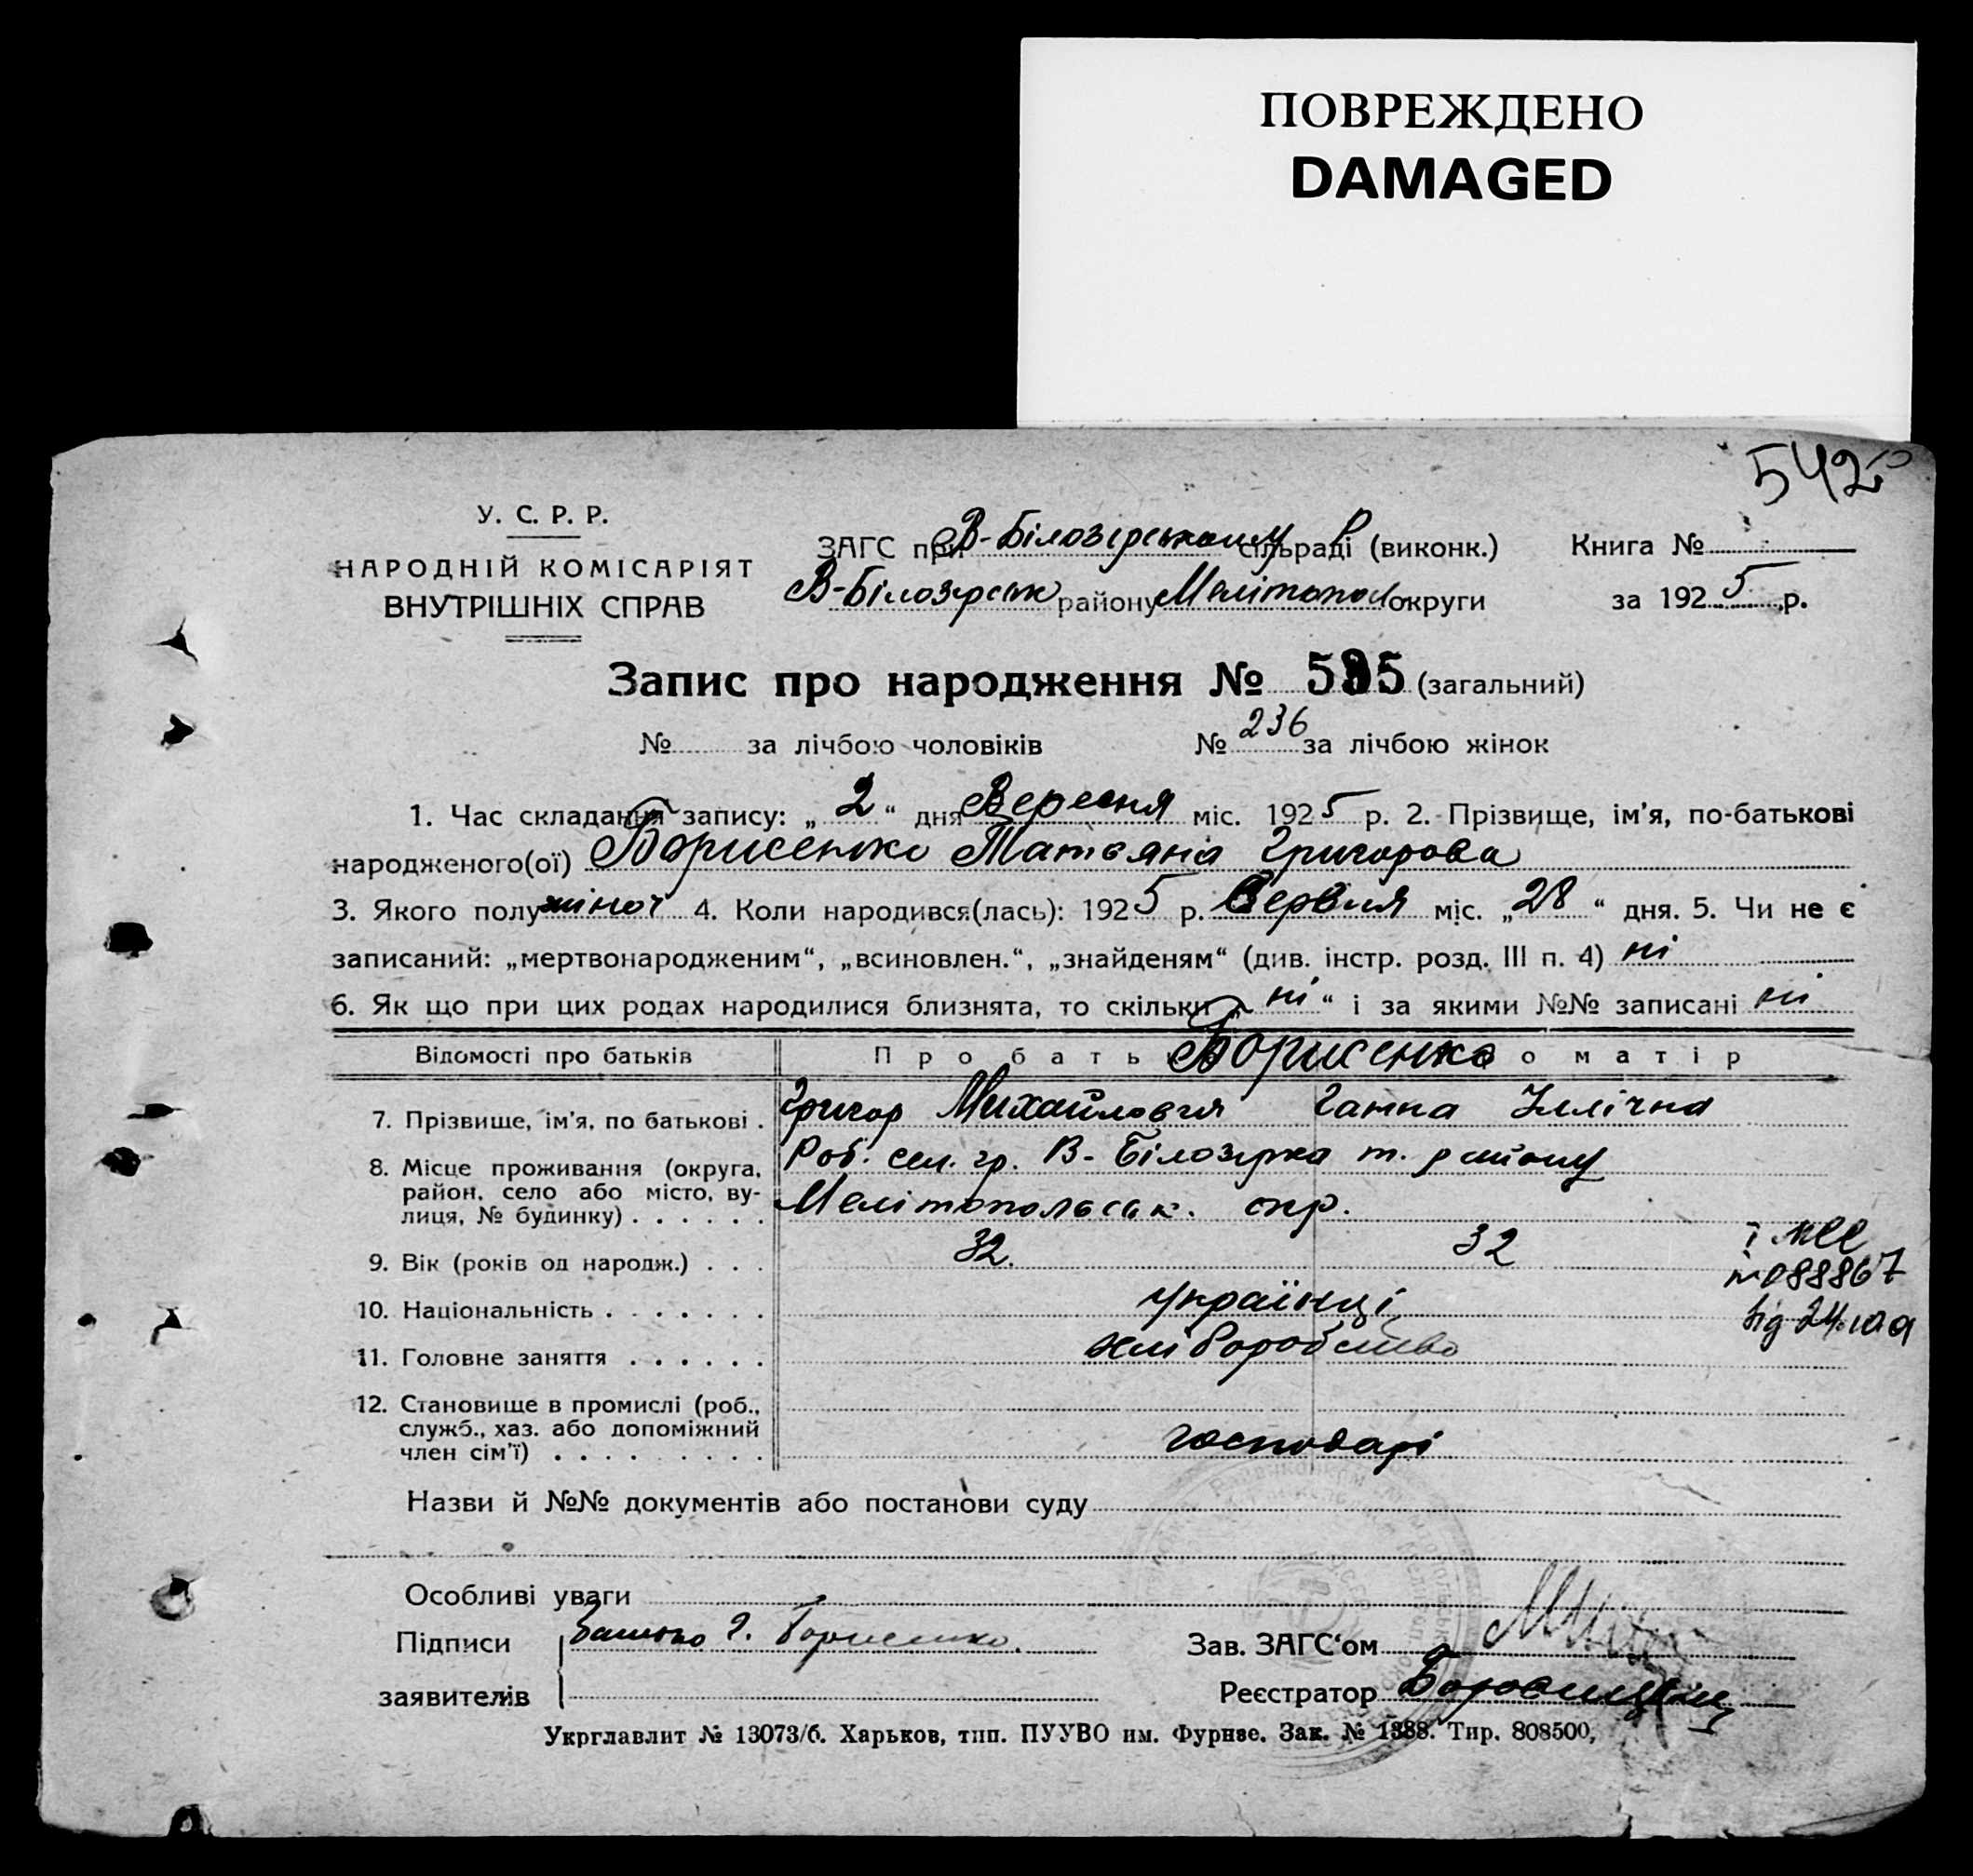 ПОВРЕЖДЕНО
DAMAGED
542
У. С. Р. Р.
НАРОДНІЙ КОМІСАРІЯТ
ВНУТРІШНІХ СПРАВ
ЗАГС при В-Білозерському сільраді (виконк.)
В-Білозерськ району Мелітопол округи
Книга №
за 1925 р.
Запис про народження № 535 (загальний)
№ за лічбою чоловіків № 236 за лічбою жінок
1. Час складання запису: „2“ дня Вересня міс. 1925 р. 2. Прізвище, ім'я, по-батькові
народженого(ої) Борисенко Татьяна Григорова
3. Якого полу жіноч 4. Коли народився(лась): 1925 р. Червня міс. „28“ дня. 5. Чи не є
записаний: „мертвонародженим“, „всиновлен.“, „знайденям“ (див. інстр. розд. III п. 4) ні
6. Як що при цих родах народилися близнята, то скільки „ні“ і за якими №№ записані ні
Відомості про батьків Про бать Борисенко о матір
7. Прізвище, ім'я, по батькові . Григор Михайлович Ганна Іллічна
8. Місце проживання (округа, Роб. сел. гр. В-Білозірка т. району
район, село або місто, ву- Мелітопольськ. окр.
лиця, № будинку) . . . . . .
9. Вік (років од народж.) . . . 32. 32
№ 088867
10. Національність . . . . . . . українці
від 24
11. Головне заняття . . . . . . хліборобство
12. Становище в промислі (роб.,
служб., хаз. або допоміжний
член сім'ї) . . . . . . . . . господарі
Назви й №№ документів або постанови суду
Особливі уваги
Підписи Батько Г. Борисенко.
заявителів
Зав. ЗАГС'ом
Реєстратор
Укрглавлит № 13073/б. Харьков, тип. ПУУВО им. Фрунзе. Зак. № 1388. Тир. 808500,